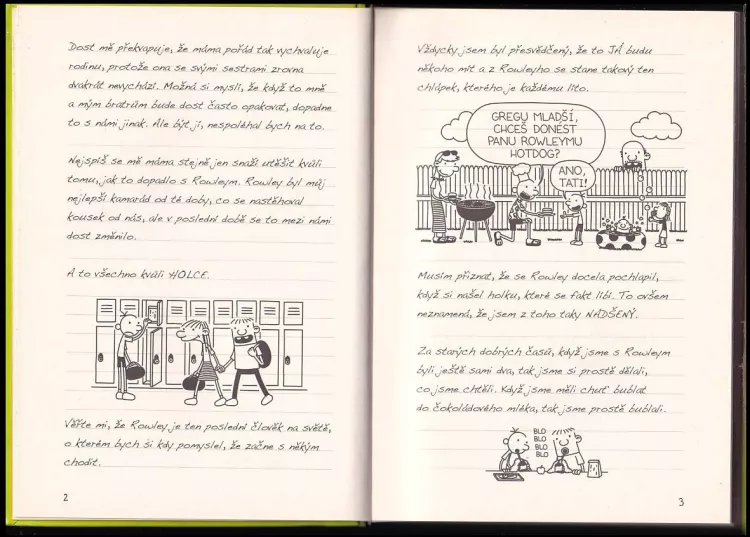 Dost mě překvapuje, že máma pořád tak vychvaluje
rodinu, protože ona se svými sestrami zrovna
dvakrát nevychází. Možná si myslí, že když to mně
a mým bratrům bude dost často opakovat, dopadne
to s námi jinak. Ale být jí, nespoléhal bych na to.
Nejspíš se mě máma stejně jen snaží utěšit kvůli
tomu, jak to dopadlo s Rowleym. Rowley byl můj
nejlepší kamarád od té doby, co se nastěhoval
kousek od nás, ale v poslední době se to mezi námi
dost změnilo.
A to všechno kvůli HOLCE.
Věřte mi, že Rowley je ten poslední člověk na světě,
o kterém bych si kdy pomyslel, že začne s někým
chodit.
2
Vždycky jsem byl přesvědčený, že to JÁ budu
někoho mít a z Rowleyho se stane takový ten
chlápek, kterého je každému líto.
GREGU MLADŠÍ,
CHCEŠ DONÉST
PANU ROWLEYMU
HOTDOG?
ANO,
TATI!
Musím přiznat, že se Rowley docela pochlapil,
když si našel holku, které se fakt líbí. To ovšem
neznamená, že jsem z toho taky NADŠENÝ.
Za starých dobrých časů, když jsme s Rowleym
byli ještě sami dva, tak jsme si prostě dělali,
co jsme chtěli. Když jsme měli chuť bublat
do čokoládového mléka, tak jsme prostě bublali.
BLO
BLO
BLO
BLO
3